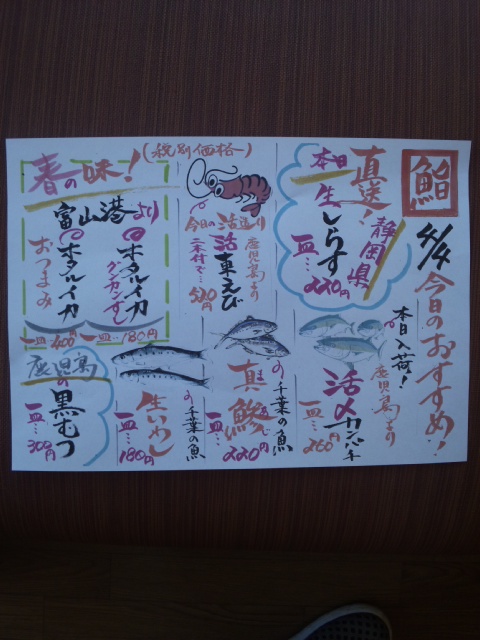 鮨
4/4 今日のおすすめ!
本日
直送!
静岡県
生しらす
一皿…220円
本日入荷!
鹿児島より
活〆カンパチ
一皿…260円
(税別価格)
今日の活造り
鹿児島より
活車えび
二本付で…
520円
千葉の魚
真鯵
一皿…220円
春の味!
富山港より
ホタルイカ
グンカンずし
一皿…180円
ホタルイカ
おつまみ
一皿400円
の千葉の魚
生いわし
一皿…180円
鹿児島
の黒むつ
一皿…300円